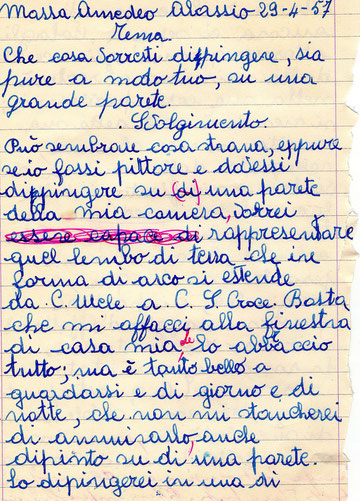 Massa Amedeo Alassio 29-4-57
Tema
Che cosa vorresti dippingere, sia
pure a modo tuo, su una
grande parete.
Svolgimento.
Può sembrare cosa strana, eppure
se io fossi pittore e dovessi
dippingere su (di) una parete
della mia camera, vorrei
essere capace di rappresentare
quel lembo di terra che in
forma di arco si estende
da C. Mele a C. S. Croce. Basta
che mi affacci alla finestra
di casa mia e lo abbraccio
tutto; ma è tanto bello a
guardarsi e di giorno e di
notte, che non mi stancherei
di ammirarlo, anche
dipinto su di una parete.
Lo dipingerei in una di